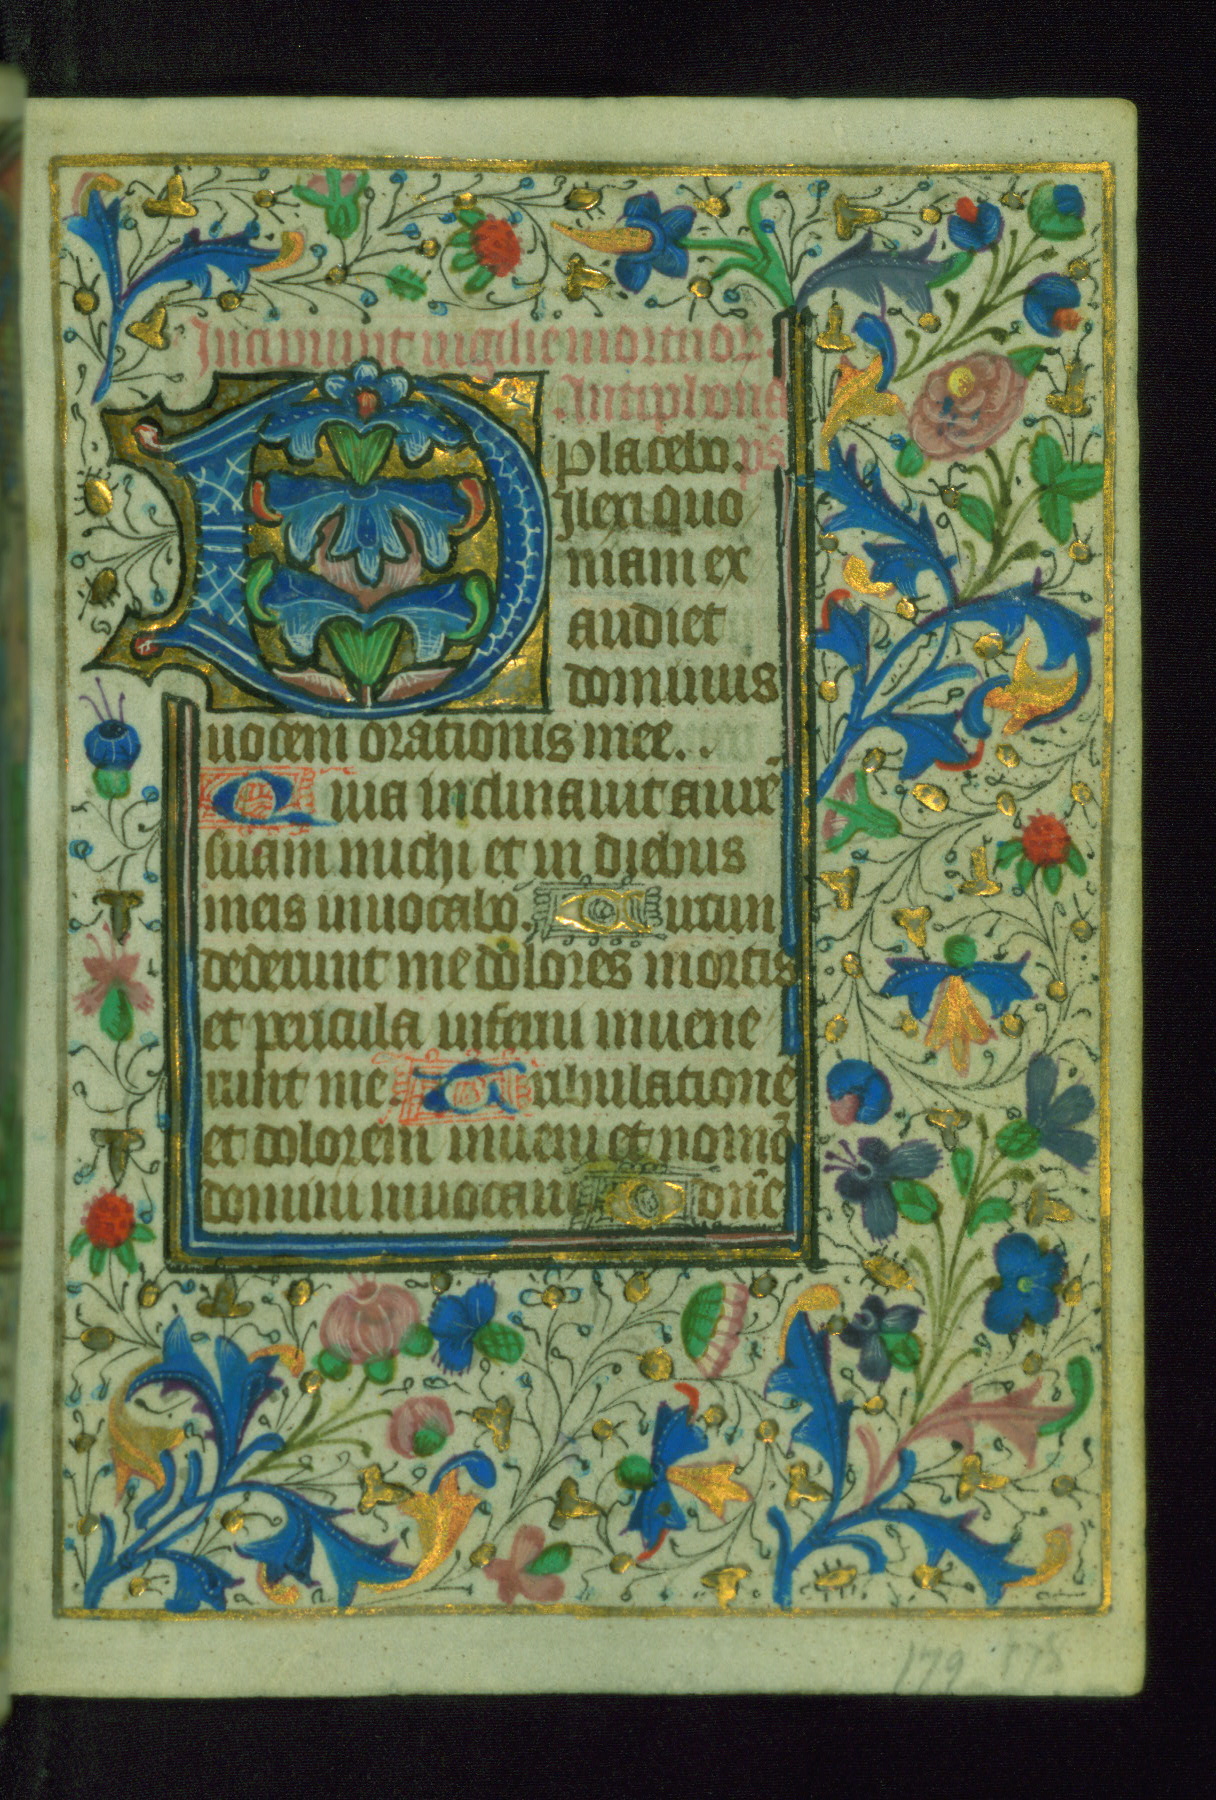 Incipiunt vigilie mortuor.
Antiphona
placebo. ps
Dilexi quo
niam ex
audiet
dominus
uocem orationis mee.
Quia inclinauit aurē
suam michi et in diebus
meis inuocabo. Circun
dederunt me dolores mortis
et pericula inferni inuene
runt me Tribulationē
et dolorem inueni et nomē
domini inuocaui O dn̄e
179